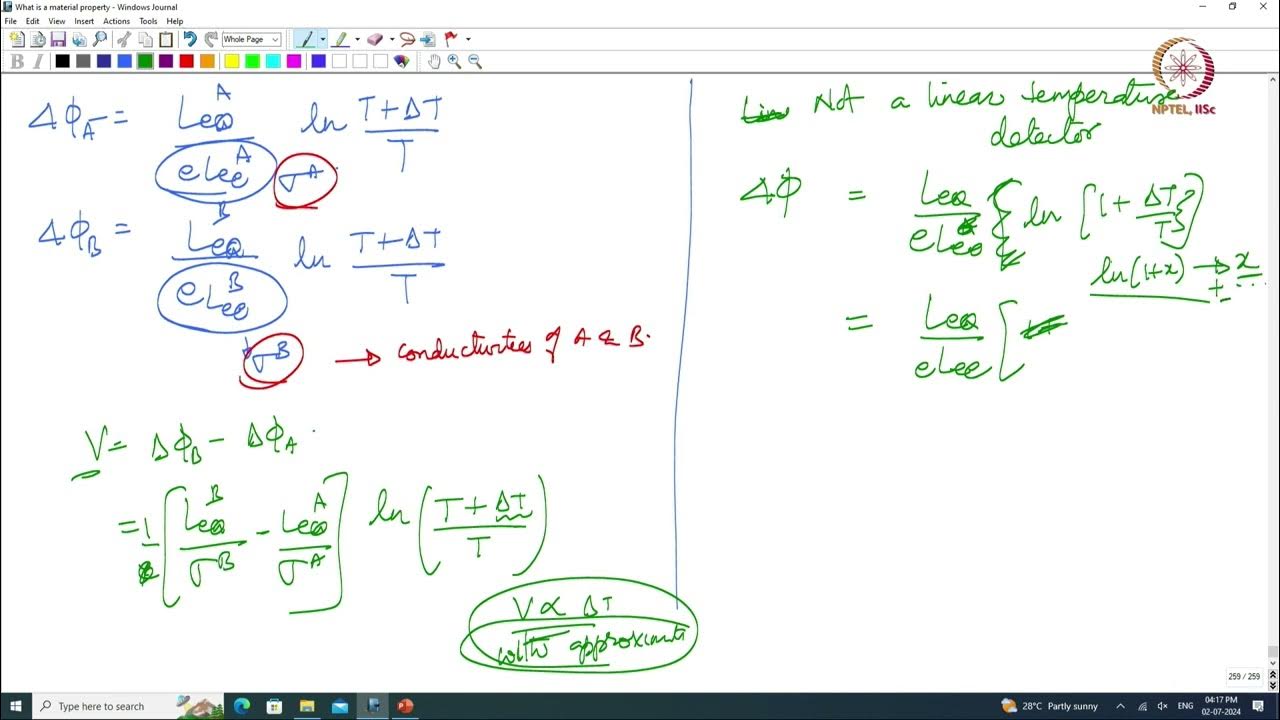 What is a material property - Windows Journal
File Edit View Insert Actions Tools Help
Whole Page
B I
NPTEL, IISc
Δφ_A = L_eQ^A / (e L_ee^A) σ^A ln (T+ΔT)/T
Δφ_B = L_eQ^B / (e L_ee^B) ln (T+ΔT)/T
σ^B → conductivities of A & B.
V = Δφ_B - Δφ_A
= 1 [ L_eQ^B / σ^B - L_eQ^A / σ^A ] ln ( (T + ΔT) / T )
V ∝ ΔT
with approximate
Not a linear temperature
detector
Δφ = L_eQ / (e L_ee) { ln [1 + ΔT/T] }
ln(1+x) → x
+ - ...
= L_eQ / (e L_ee) [
259 / 259
Type here to search
28°C Partly sunny
ENG
04:17 PM
02-07-2024